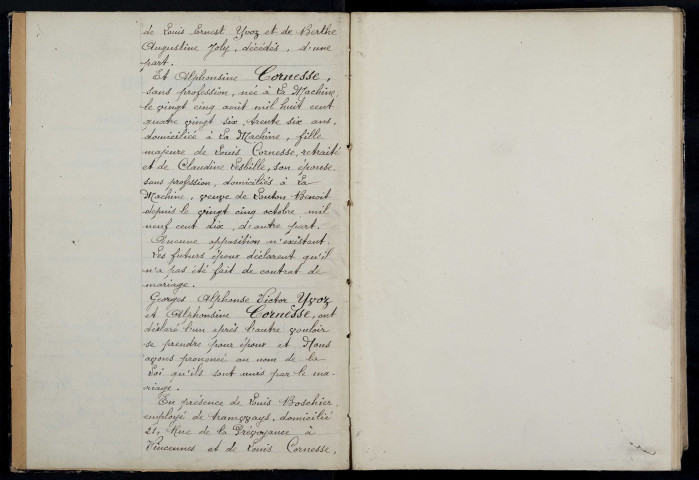 de Louis Ernest Yvoz et de Berthe
Augustine Joly, décédés, d'une
part.
Et Alphonsine Cornesse,
sans profession, née à La Machine,
le vingt cinq août mil huit cent
quatre vingt six, trente six ans,
domiciliée à La Machine, fille
majeure de Louis Cornesse, retraité
et de Claudine Lesbille, son épouse,
sans profession, domiciliés à La
Machine, veuve de Benoit
depuis le vingt cinq octobre mil
neuf cent dix, d'autre part.
Aucune opposition n'existant.
Les futurs époux déclarent qu'il
n'a pas été fait de contrat de
mariage.
Georges Alphonse Victor Yvoz
et Alphonsine Cornesse, ont
déclaré l'un après l'autre vouloir
se prendre pour époux et Nous
avons prononcé au nom de la
Loi qu'ils sont unis par le ma-
riage.
En présence de Louis Boschier,
employé de tramways, domicilié
21, Rue de la Prévoyance à
Vincennes et de Louis Cornesse,